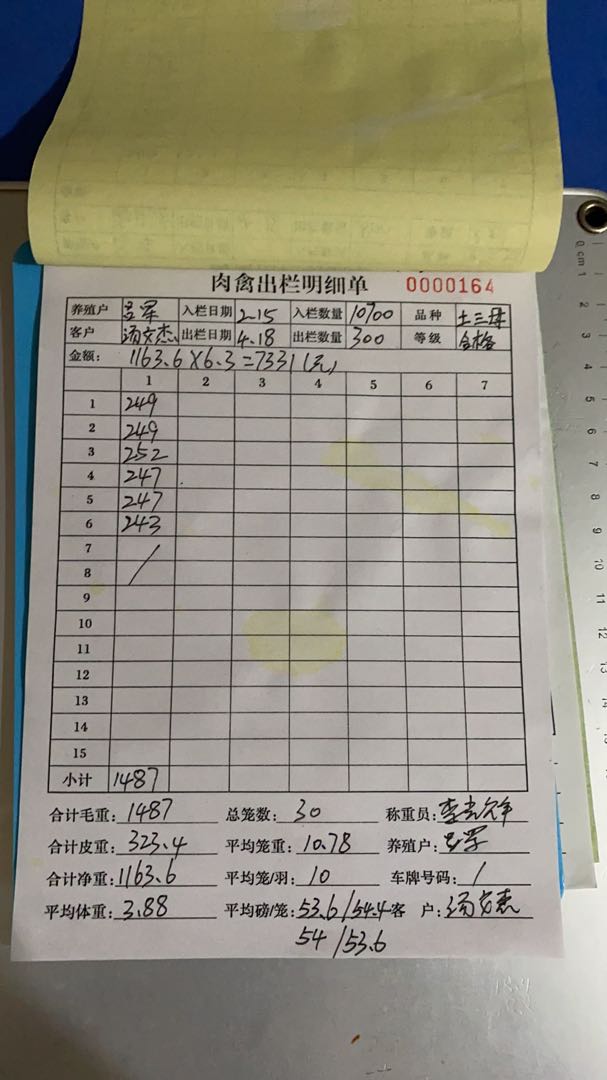 肉禽出栏明细单 0000164
养殖户 入栏日期 2-15 入栏数量 10700 品种 土三
客户 汤文杰 出栏日期 4.18 出栏数量 300 等级 合格
金额: 1163.6×6.3=7331(元)
1 2 3 4 5 6 7
1 249
2 249
3 252
4 247
5 247
6 243
7 /
8
9
10
11
12
13
14
15
小计 1487
合计毛重: 1487 总笼数: 30 称重员:
合计皮重: 323.4 平均笼重: 10.78 养殖户:
合计净重: 1163.6 平均笼/羽: 10 车牌号码: /
平均体重: 3.88 平均磅/笼: 53.6/54.4 客 户: 汤文杰
54/53.6
0 cm 1 2 3 4 5 6 7 8 9 10 11 12 13